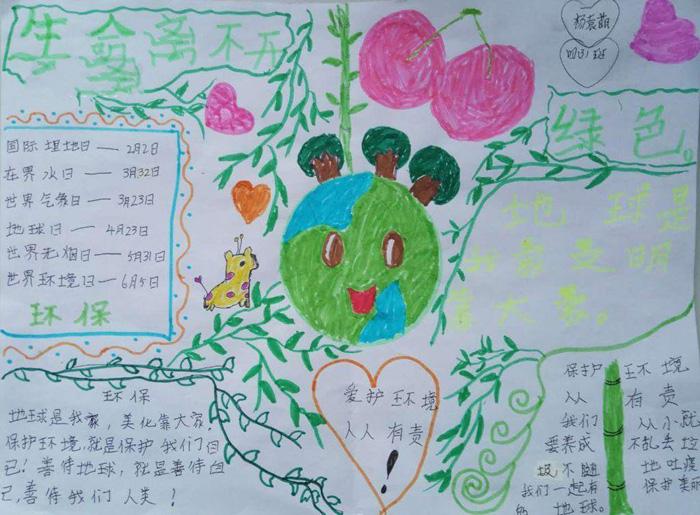 生命离不开
绿色。
杨袁萌
四(3)班
国际 堤地日——2月2日
在界 水日——3月32日
世界 气象日——3月23日
地球日——4月23日
世界无烟日——5月31日
世界环境日——6月5日
环保
地 球是
我家 文明
靠大家。
环保
地球是我家，美化靠大家
保护环境，就是保护 我们自
已！善待地球，就是善待自
己，善待 我们 人类！
爱护 环境
人人 有责
！
保护 环境
人人 有责
我们 从小就
要养成 不乱丢垃
圾 不随 地吐痰
我们一起有 保护美丽
的 地球。